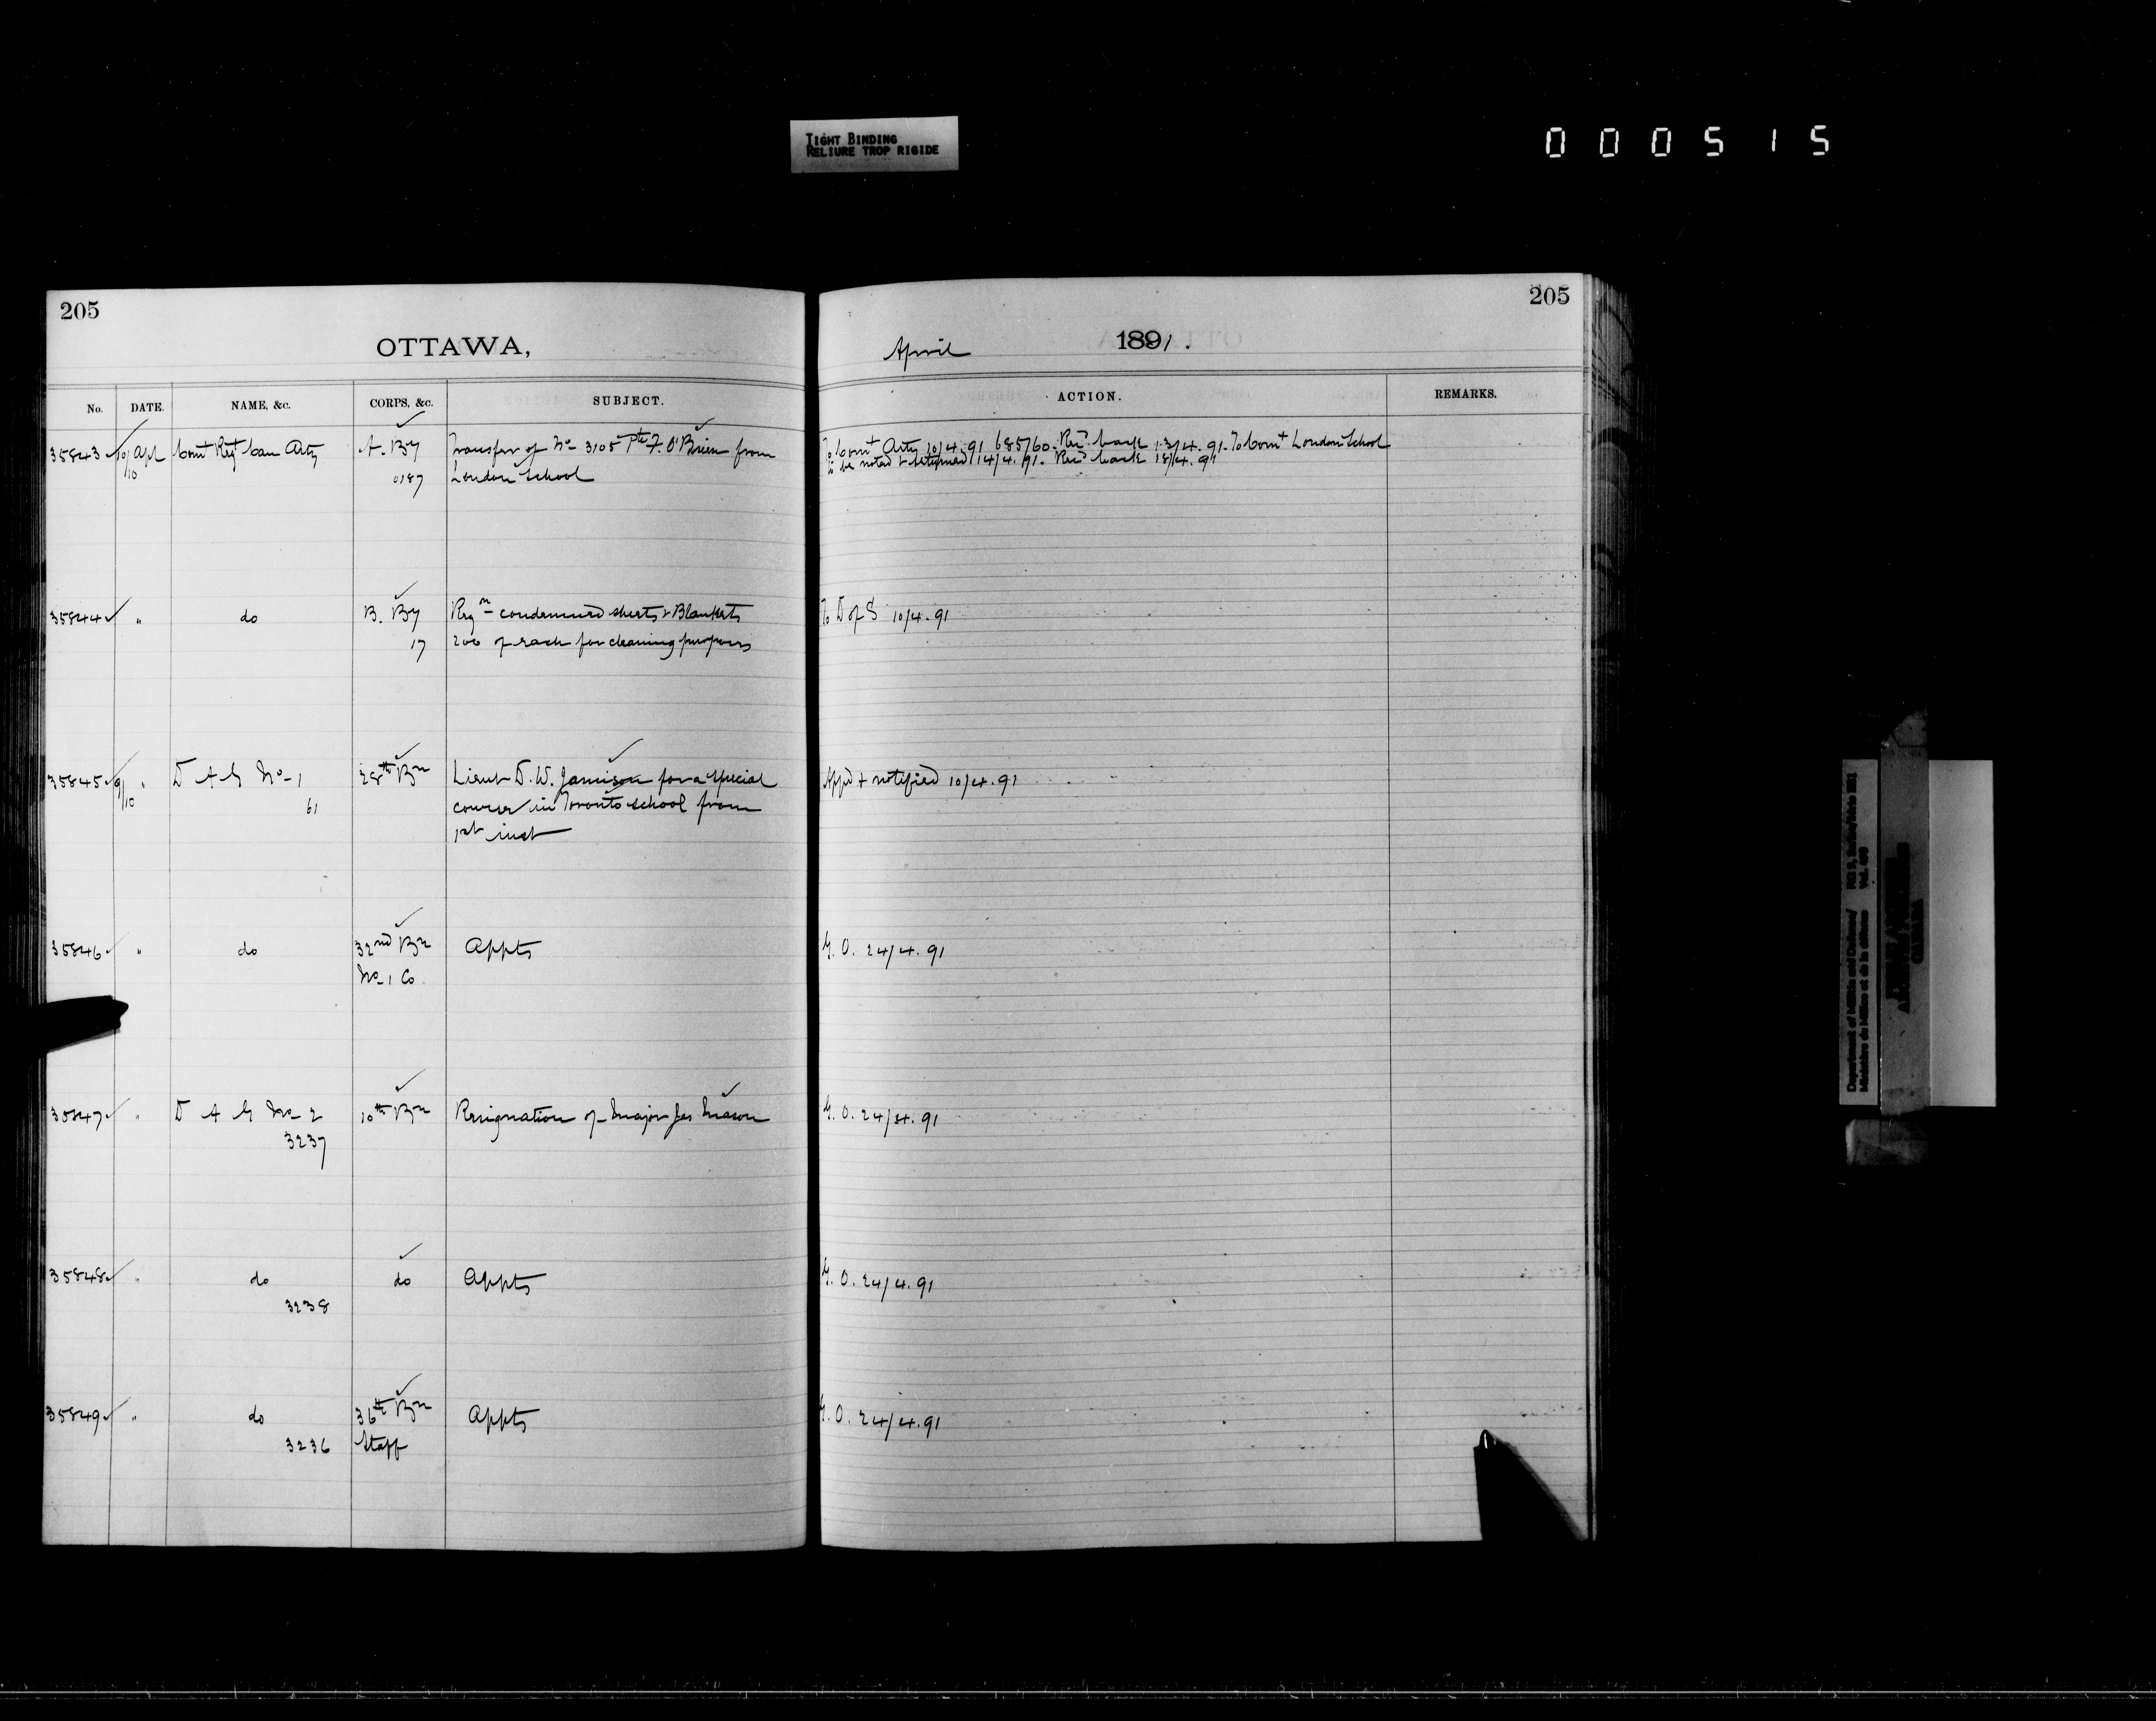 TIGHT BINDING
RELIURE TROP RIGIDE
000515
205
OTTAWA,
No. DATE. NAME, &c. CORPS, &c. SUBJECT.
35843 10/10 Apl Comt Regt Can Arty A. By Transfer of No 3105 Pte F. O'Brien from
0187 London School
35844 " do B. By Reqn condemned sheets & Blankets
17 200 of each for cleaning purposes
35845 9/10 " D A G No 1 28th Bn Lieut D. W. Jamison for a special
61 course in Toronto school from
1st inst
35846 " do 32nd Bn Appts
No 1 Co.
35847 " D A G No 2 10th Bn Resignation of Major Jas Mason
3237
35848 " do do Appts
3238
35849 " do 36th Bn Appts
3236 Staff
205
April 1891.
ACTION. REMARKS.
To Comt Arty 10/4.91 685760. Recd back 13/4.91. To Comt London School
to be noted & returned 14/4.91. Recd back 18/4.91
To D of S 10/4.91
Appd & notified 10/4.91
G. O. 24/4.91
G. O. 24/4.91
G. O. 24/4.91
G. O. 24/4.91
Department of Militia and Defence/
Ministère de Milice et de la défense